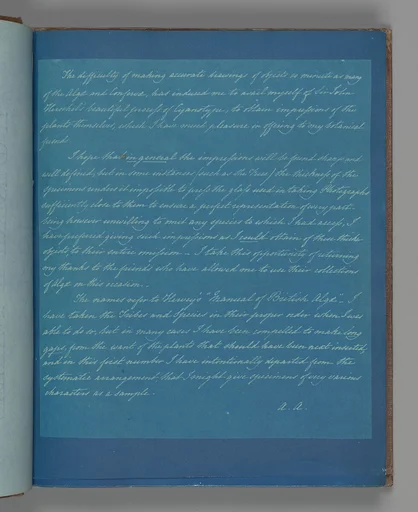 The difficulty of making accurate drawings of objects so minute as many
of the Algæ and Confervæ, has induced me to avail myself of Sir John
Herschel's beautiful process of Cyanotype, to obtain impressions of the
plants themselves, which I have much pleasure in offering to my botanical
friends.
I hope that in general the impressions will be found sharp and
well defined, but in some instances (such as the Fuci) the thickness of the
specimens renders it impossible to press the glass used in taking Photographs
sufficiently close to them to ensure a perfect representation of every part.
Being however unwilling to omit any species to which I had access, I
have preferred giving such impressions as I could obtain of these thick
objects, to their entire omission. I take this opportunity of returning
my thanks to the friends who have allowed me to use their collections
of Algæ on this occasion.
The names refer to Harvey's "Manual of British Algæ". I
have taken the Tribes and Species in their proper order when I was
able to do so, but in many cases I have been compelled to make long
gaps, from the want of the plants that should have been next inserted,
and in this first number I have intentionally departed from the
systematic arrangement that I might give specimens of very various
characters as a sample.
A. A.